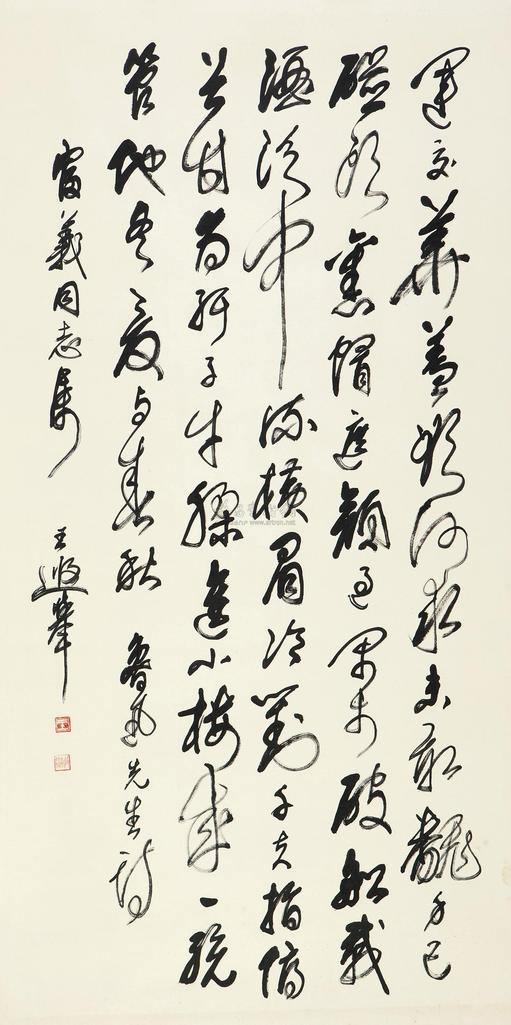 運交華蓋欲何求未敢翻身已
碰頭舊帽遮顏過鬧市破船載
酒泛中流橫眉冷對千夫指俯
首甘為孺子牛躲進小樓成一統
管他冬夏與春秋 魯迅先生詩
富義同志屬 王遐舉